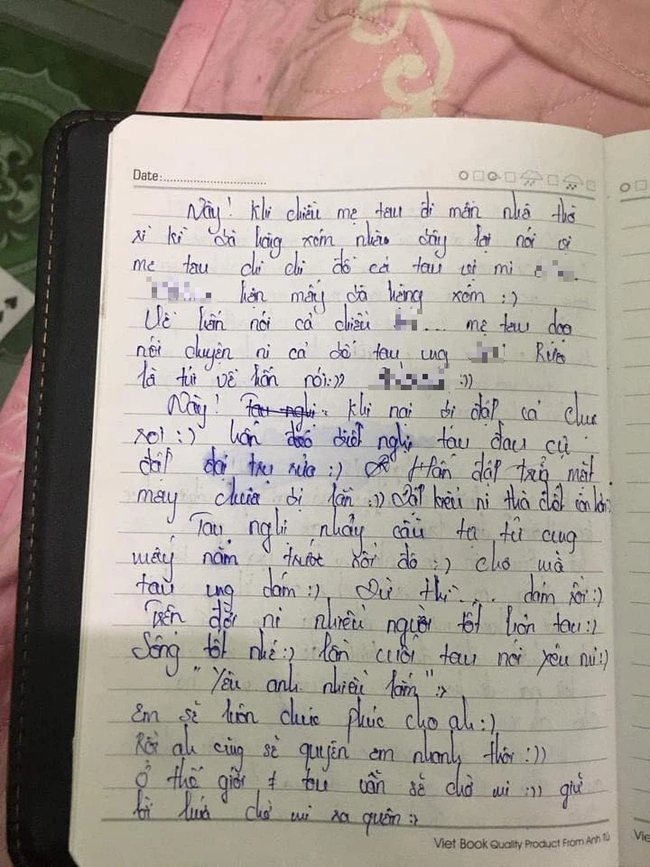 Date:
Này! Khi chiều mẹ tau đi mần nhà thờ
xì kì đã hàng xóm nhào đây lại nói vị
mẹ tau chi chi đó cả tau vị mi
hắn mấy dà hàng xóm :)
Về hắn nói cả chiều ... mẹ tau dọa
nói chuyện ni cả đó tau ưng Rứa
là túi về hắn nói :))  :))
Này! Tau nghi. Khi nại bị đập cả chưa
xoi :) hắn biết nghị tau đau cự
đập đại tru rứa :) Hắn đập trẩy mặt
may chưa bị lần :)) Đập kiểu ni thà đốt còn hơn
Tau nghi nhảy cầu tự tử cung
mấy năm trước rồi đó :) cho mà
tau ưng dám :) Dừ thì ... dám rồi :)
Trên đời ni nhiều người tốt hơn tau :)
Sống tốt nhé :) lần cuối tau nói yêu mi :)
"Yêu anh nhiều lắm" :)
Em sẽ luôn chúc phúc cho ah :)
Rồi ah cũng sẽ quyên em nhanh thôi :))
Ở thế giới # tau vẫn sẽ chờ mi :)) giữ
lời hứa chờ mi xa quên :)
Viet Book Quality Product From Anh Tú